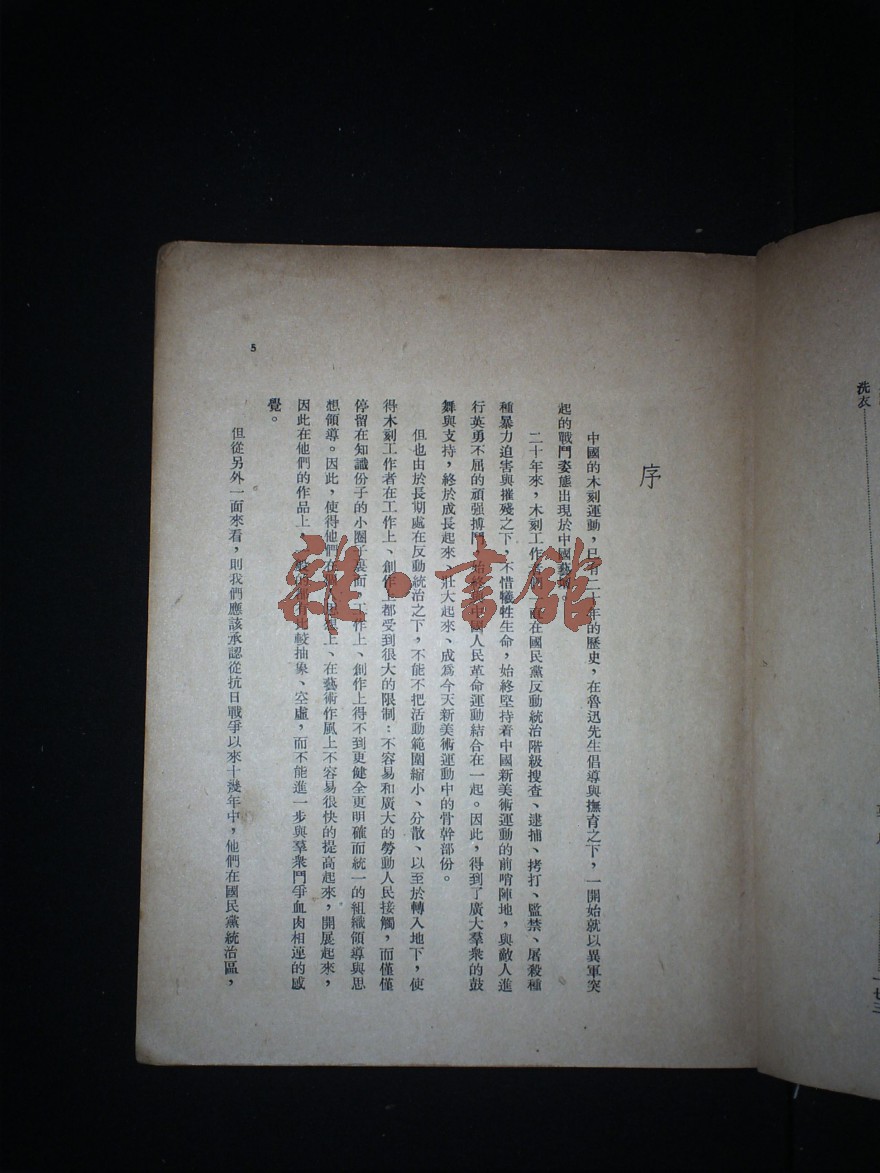 序
中國的木刻運動，已有二十年的歷史，在魯迅先生倡導與撫育之下，一開始就以異軍突
起的戰鬥姿態出現於中國藝壇。
二十年來，木刻工作者們一直在國民黨反動統治階級搜查、逮捕、拷打、監禁、屠殺種
種暴力迫害與摧殘之下，不惜犧牲生命，始終堅持着中國新美術運動的前哨陣地，與敵人進
行英勇不屈的頑强搏鬥，始終與中國人民革命運動結合在一起。因此，得到了廣大羣衆的鼓
舞與支持，終於成長起來、壯大起來、成爲今天新美術運動中的骨幹部份。
但也由於長期處在反動統治之下，不能不把活動範圍縮小、分散、以至於轉入地下，使
得木刻工作者在工作上、創作上都受到很大的限制：不容易和廣大的勞動人民接觸，而僅僅
停留在知識份子的小圈子裏面，工作上、創作上得不到更健全更明確而統一的組織領導與思
想領導。因此，使得他們在 思想上、在藝術作風上不容易很快的提高起來，開展起來，
因此在他們的作品上，比較抽象、空虛，而不能進一步與羣衆鬥爭血肉相連的感
覺。
但從另外一面來看，則我們應該承認從抗日戰爭以來十幾年中，他們在國民黨統治區，
5
洗衣
一七三
雜·書館